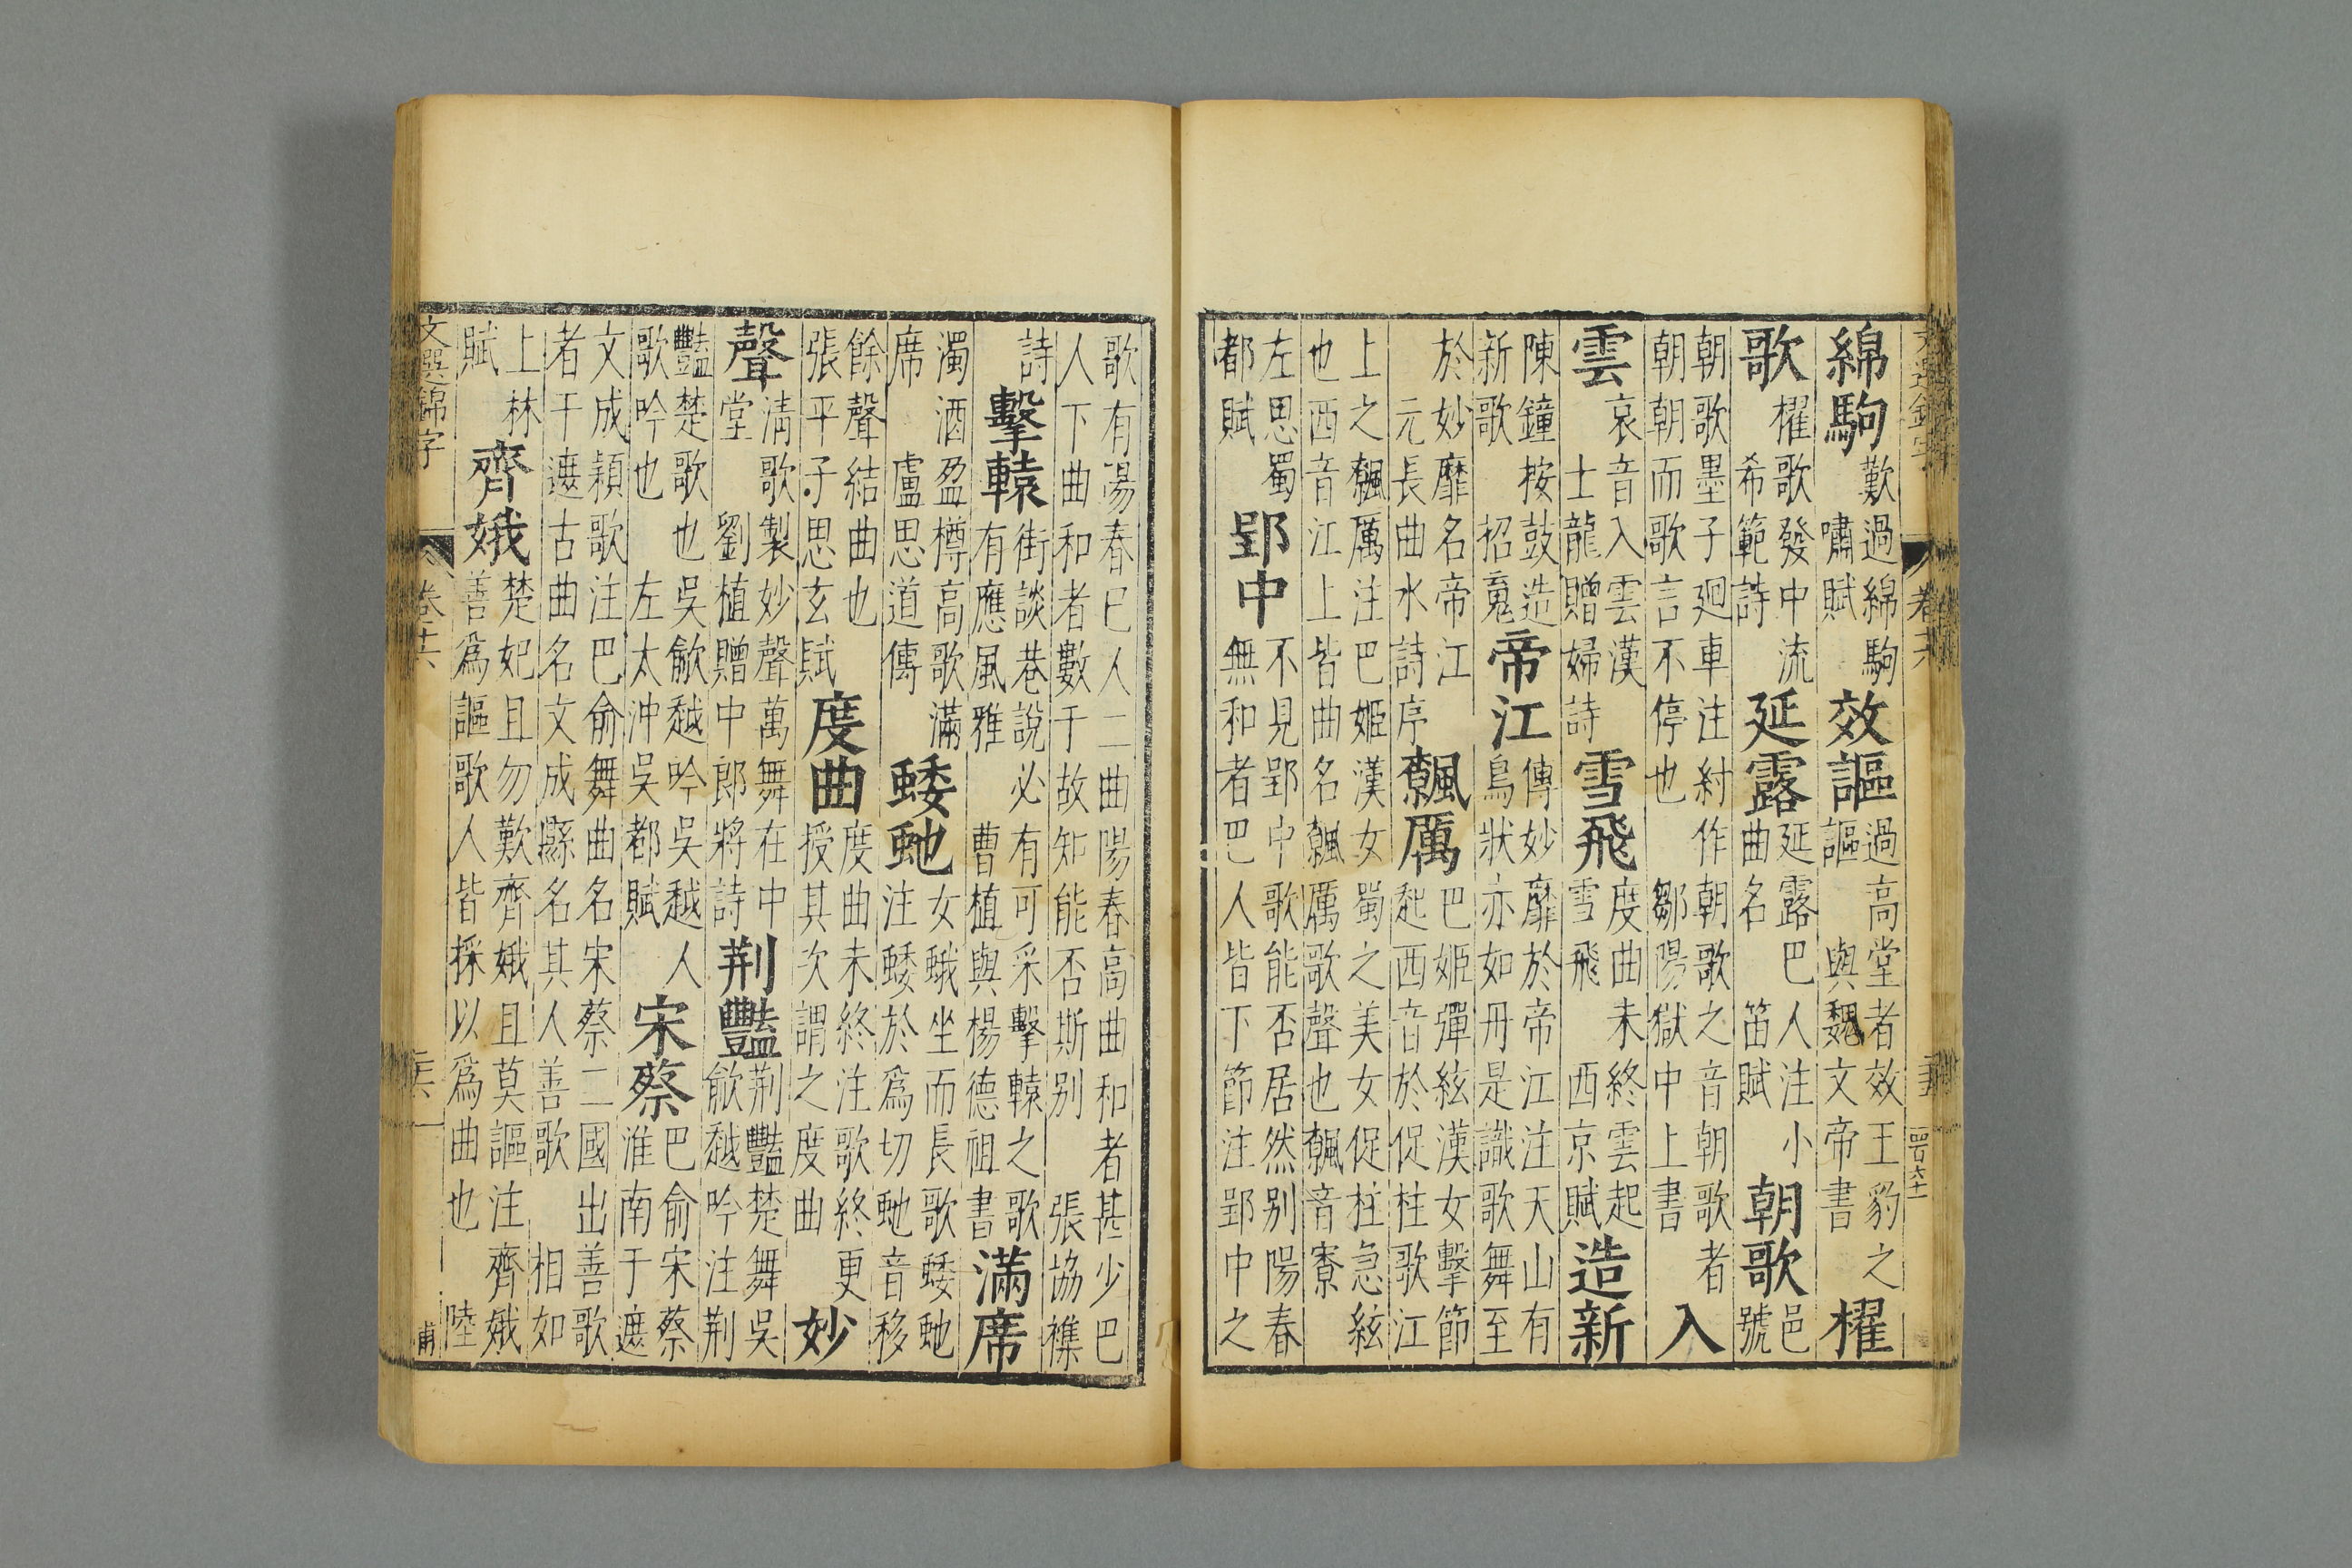 綿駒 歎過綿駒
嘯賦 效謳 過高堂者效王豹之
謳 與魏文帝書 櫂
歌 櫂歌發中流
希範詩 延露 延露巴人注小
曲名 笛賦 朝歌 邑
號
朝歌墨子廻車注紂作朝歌之音朝歌者
朝朝而歌言不停也 鄒陽獄中上書 入
雲 哀音入雲漢
士龍贈婦詩 雪飛 度曲未終雲起
雪飛 西京賦 造新
陳鐘按鼓造
新歌 招䰟 帝江 傳妙靡於帝江注天山有
鳥狀亦如丹是識歌舞至
於妙靡名帝江
元長曲水詩序 飇厲 巴姬彈絃漢女擊節
起西音於促柱歌江
上之飇厲注巴姬漢女蜀之美女促柱急絃
也西音江上皆曲名飇厲歌聲也飇音寮
左思蜀
都賦 郢中 不見郢中歌能否居然别陽春
無和者巴人皆下節注郢中之
文選錦字 卷十六
歌有陽春巴人二曲陽春高曲和者甚少巴
人下曲和者數千故知能否斯别 張協襍
詩 擊轅 街談巷說必有可采擊轅之歌
有應風雅 曹植與楊德祖書 滿席
濁酒盈樽高歌滿
席 盧思道傳 蜲虵 女娥坐而長歌蜲虵
注蜲於爲切虵音移
餘聲結曲也
張平子思玄賦 度曲 度曲未終注歌終更
授其次謂之度曲 妙
聲 清歌製妙聲萬舞在中
堂 劉植贈中郎將詩 荆豔 荆豔楚舞吳
歈越吟注荆
豔楚歌也吳歈越吟吳越人
歌吟也 左太沖吳都賦 宋蔡 巴俞宋蔡
淮南于遮
文成穎歌注巴俞舞曲名宋蔡二國出善歌
者干遮古曲名文成縣名其人善歌 相如
上林
賦 齊娥 楚妃且勿歎齊娥且莫謳注齊娥
善爲謳歌人皆採以爲曲也 陸
文選錦字 卷十六